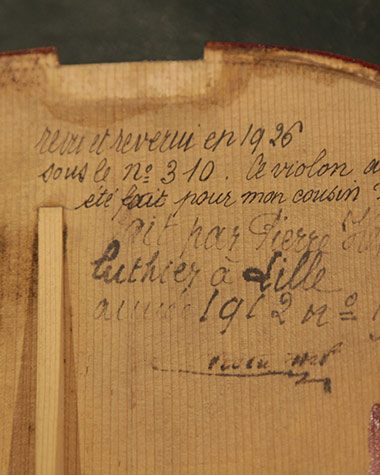 revu et reverni en 1926
sous le nº 310. Ce violon a
été fait pour mon cousin
fait par Pierre
luthier à Lille
année 1912 nº